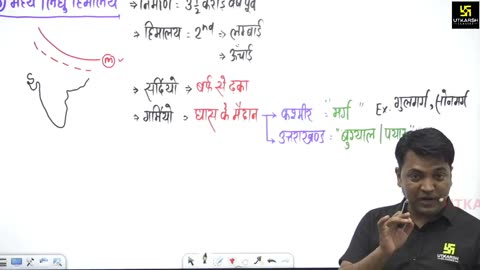 मध्य / लघु हिमालय
→ निर्माण : 3½ करोड़ वर्ष पूर्व
→ हिमालय : 2nd → लम्बाई
→ ऊँचाई
m
→ सर्दियो → बर्फ से ढका
→ गर्मियो → घास के मैदान → कश्मीर : "मर्ग" Ex. गुलमर्ग, सोनमर्ग
→ उत्तराखण्ड : "बुग्याल / पयार"
UTKARSH
UTKARSH